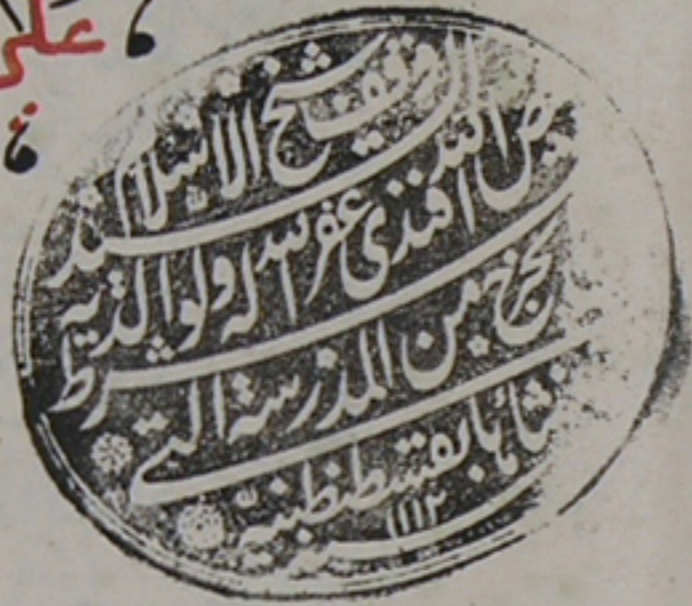 على
وقف شيخ الاسلام السيد
فيض الله افندى غفر الله له ولوالديه
بشرط ان لا يخرج من المدرسة التى
انشأها بقسطنطنية
سنة ١١١٢